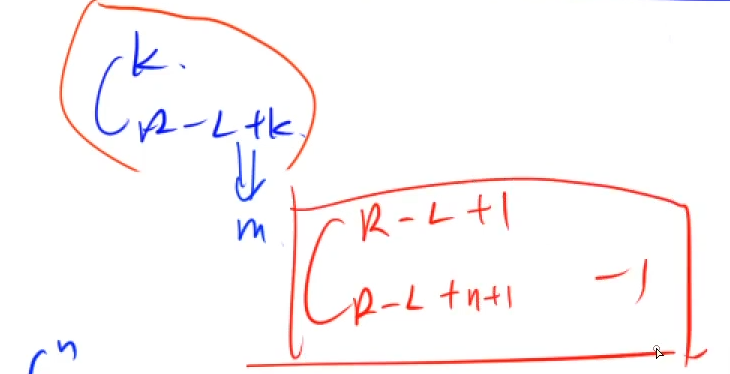 C_{R-L+k}^{k}.
⇓
m
C_{R-L+n+1}^{R-L+1} -1
C^{n}